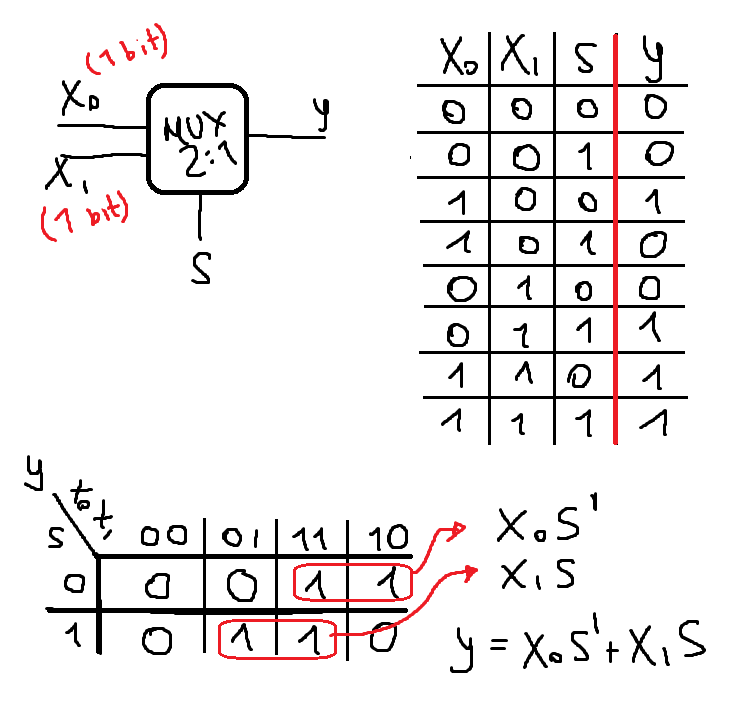 (1 bit)
X₀
MUX
2:1
y
X₁
(1 bit)
S
X₀ X₁ S y
0 0 0 0
0 0 1 0
1 0 0 1
1 0 1 0
0 1 0 0
0 1 1 1
1 1 0 1
1 1 1 1
y
t₀t₁
S 00 01 11 10
0 0 0 1 1
1 0 1 1 0
X₀S'
X₁S
y = X₀S' + X₁S